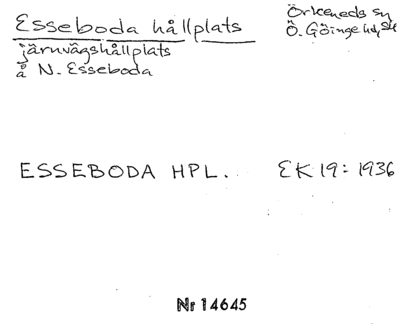 Esseboda hållplats
Örkeneds sn
Ö. Göinge hd, Sk
järnvägshållplats
å N. Esseboda
ESSEBODA HPL. EK 19: 1936
Nr 14645